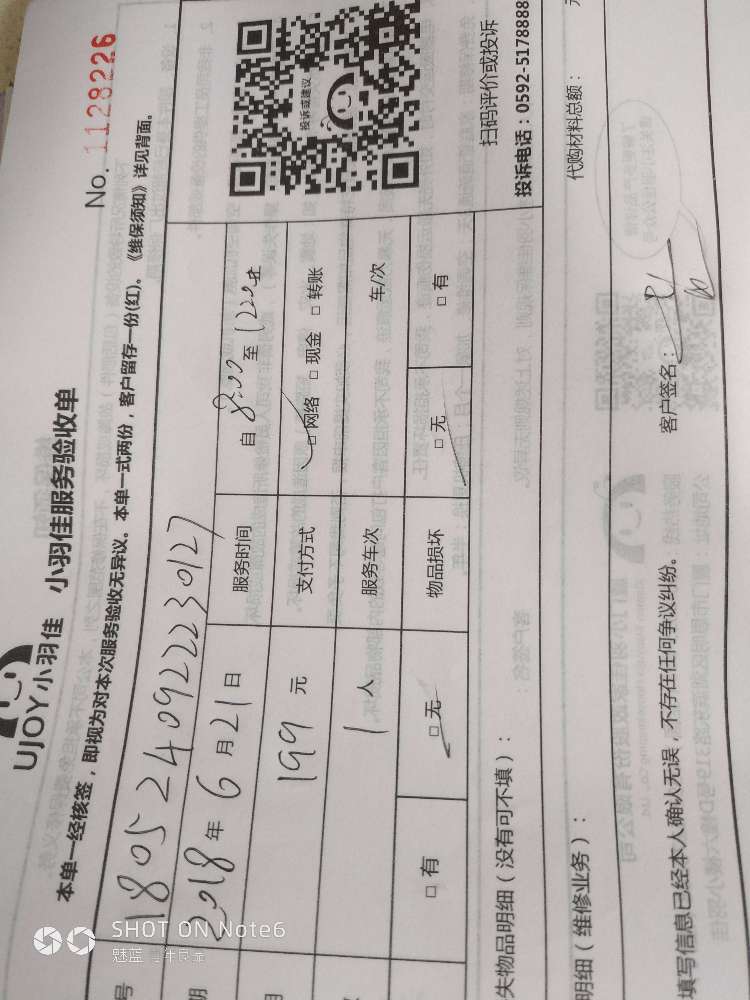 UJOY小羽佳 小羽佳服务验收单
No. 1128226
本单一经核签，即视为对本次服务验收无异议。本单一式两份，客户留存一份(红)。《维保须知》详见背面。
号 1805240922230127
期 2018年6月21日 服务时间 自8:00至12:00
用 199元 支付方式 □网络 □现金 □转账
1人 服务车次 车/次
□有 □无 物品损坏 □无 □有
投诉或建议
扫码评价或投诉
投诉电话：0592-5178888
失物品明细（没有可不填）：
明细（维修业务）： 代购材料总额：
填写信息已经本人确认无误，不存在任何争议纠纷。 客户签名：
SHOT ON Note6
魅蓝